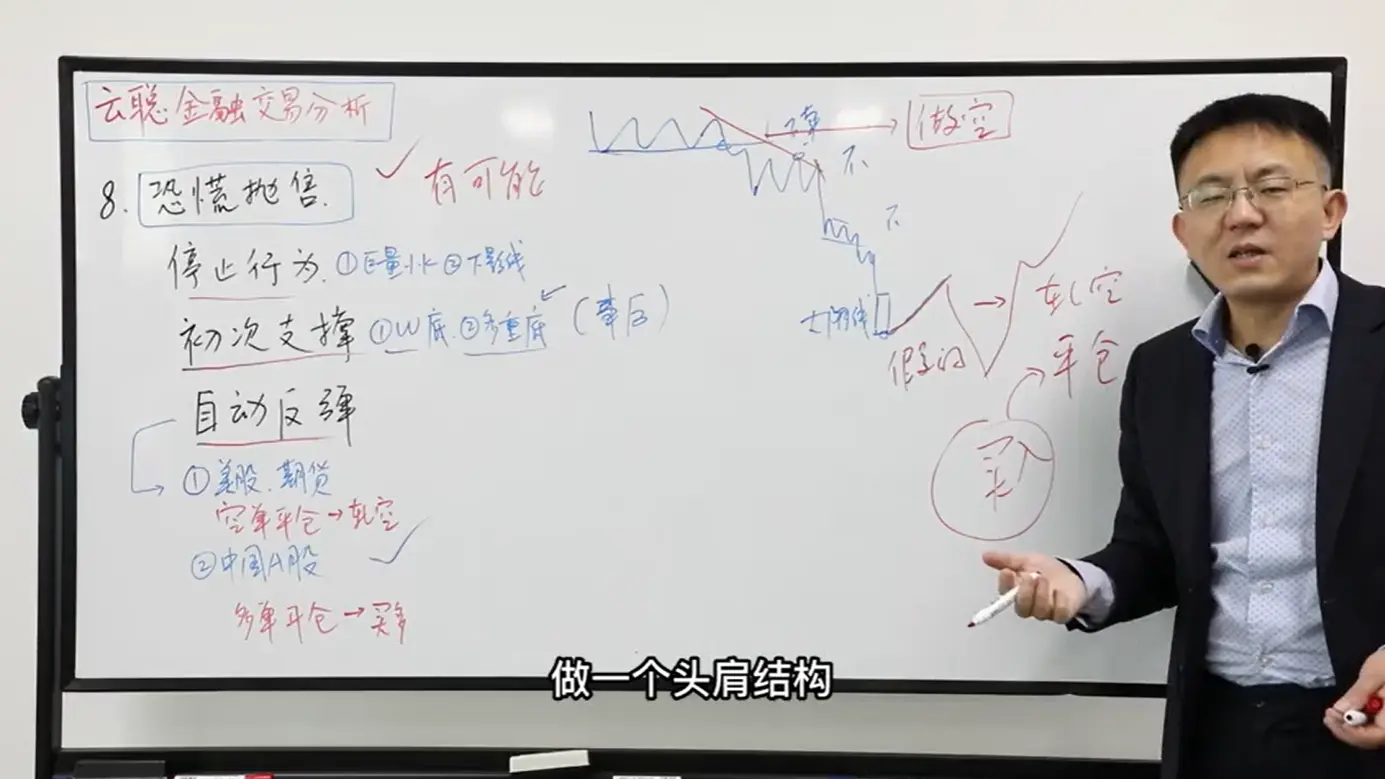 云聪金融交易分析
8. 恐慌抛售.
有可能
停止行为. ①巨量小K ②下影线
初次支撑 ①W底. ②多重底 (幕后)
自动反弹
①美股.期货
空单平仓→轧空
②中国A股
多单平仓→买多
做空
不
不
轧空
平仓
假的
买入
做一个头肩结构